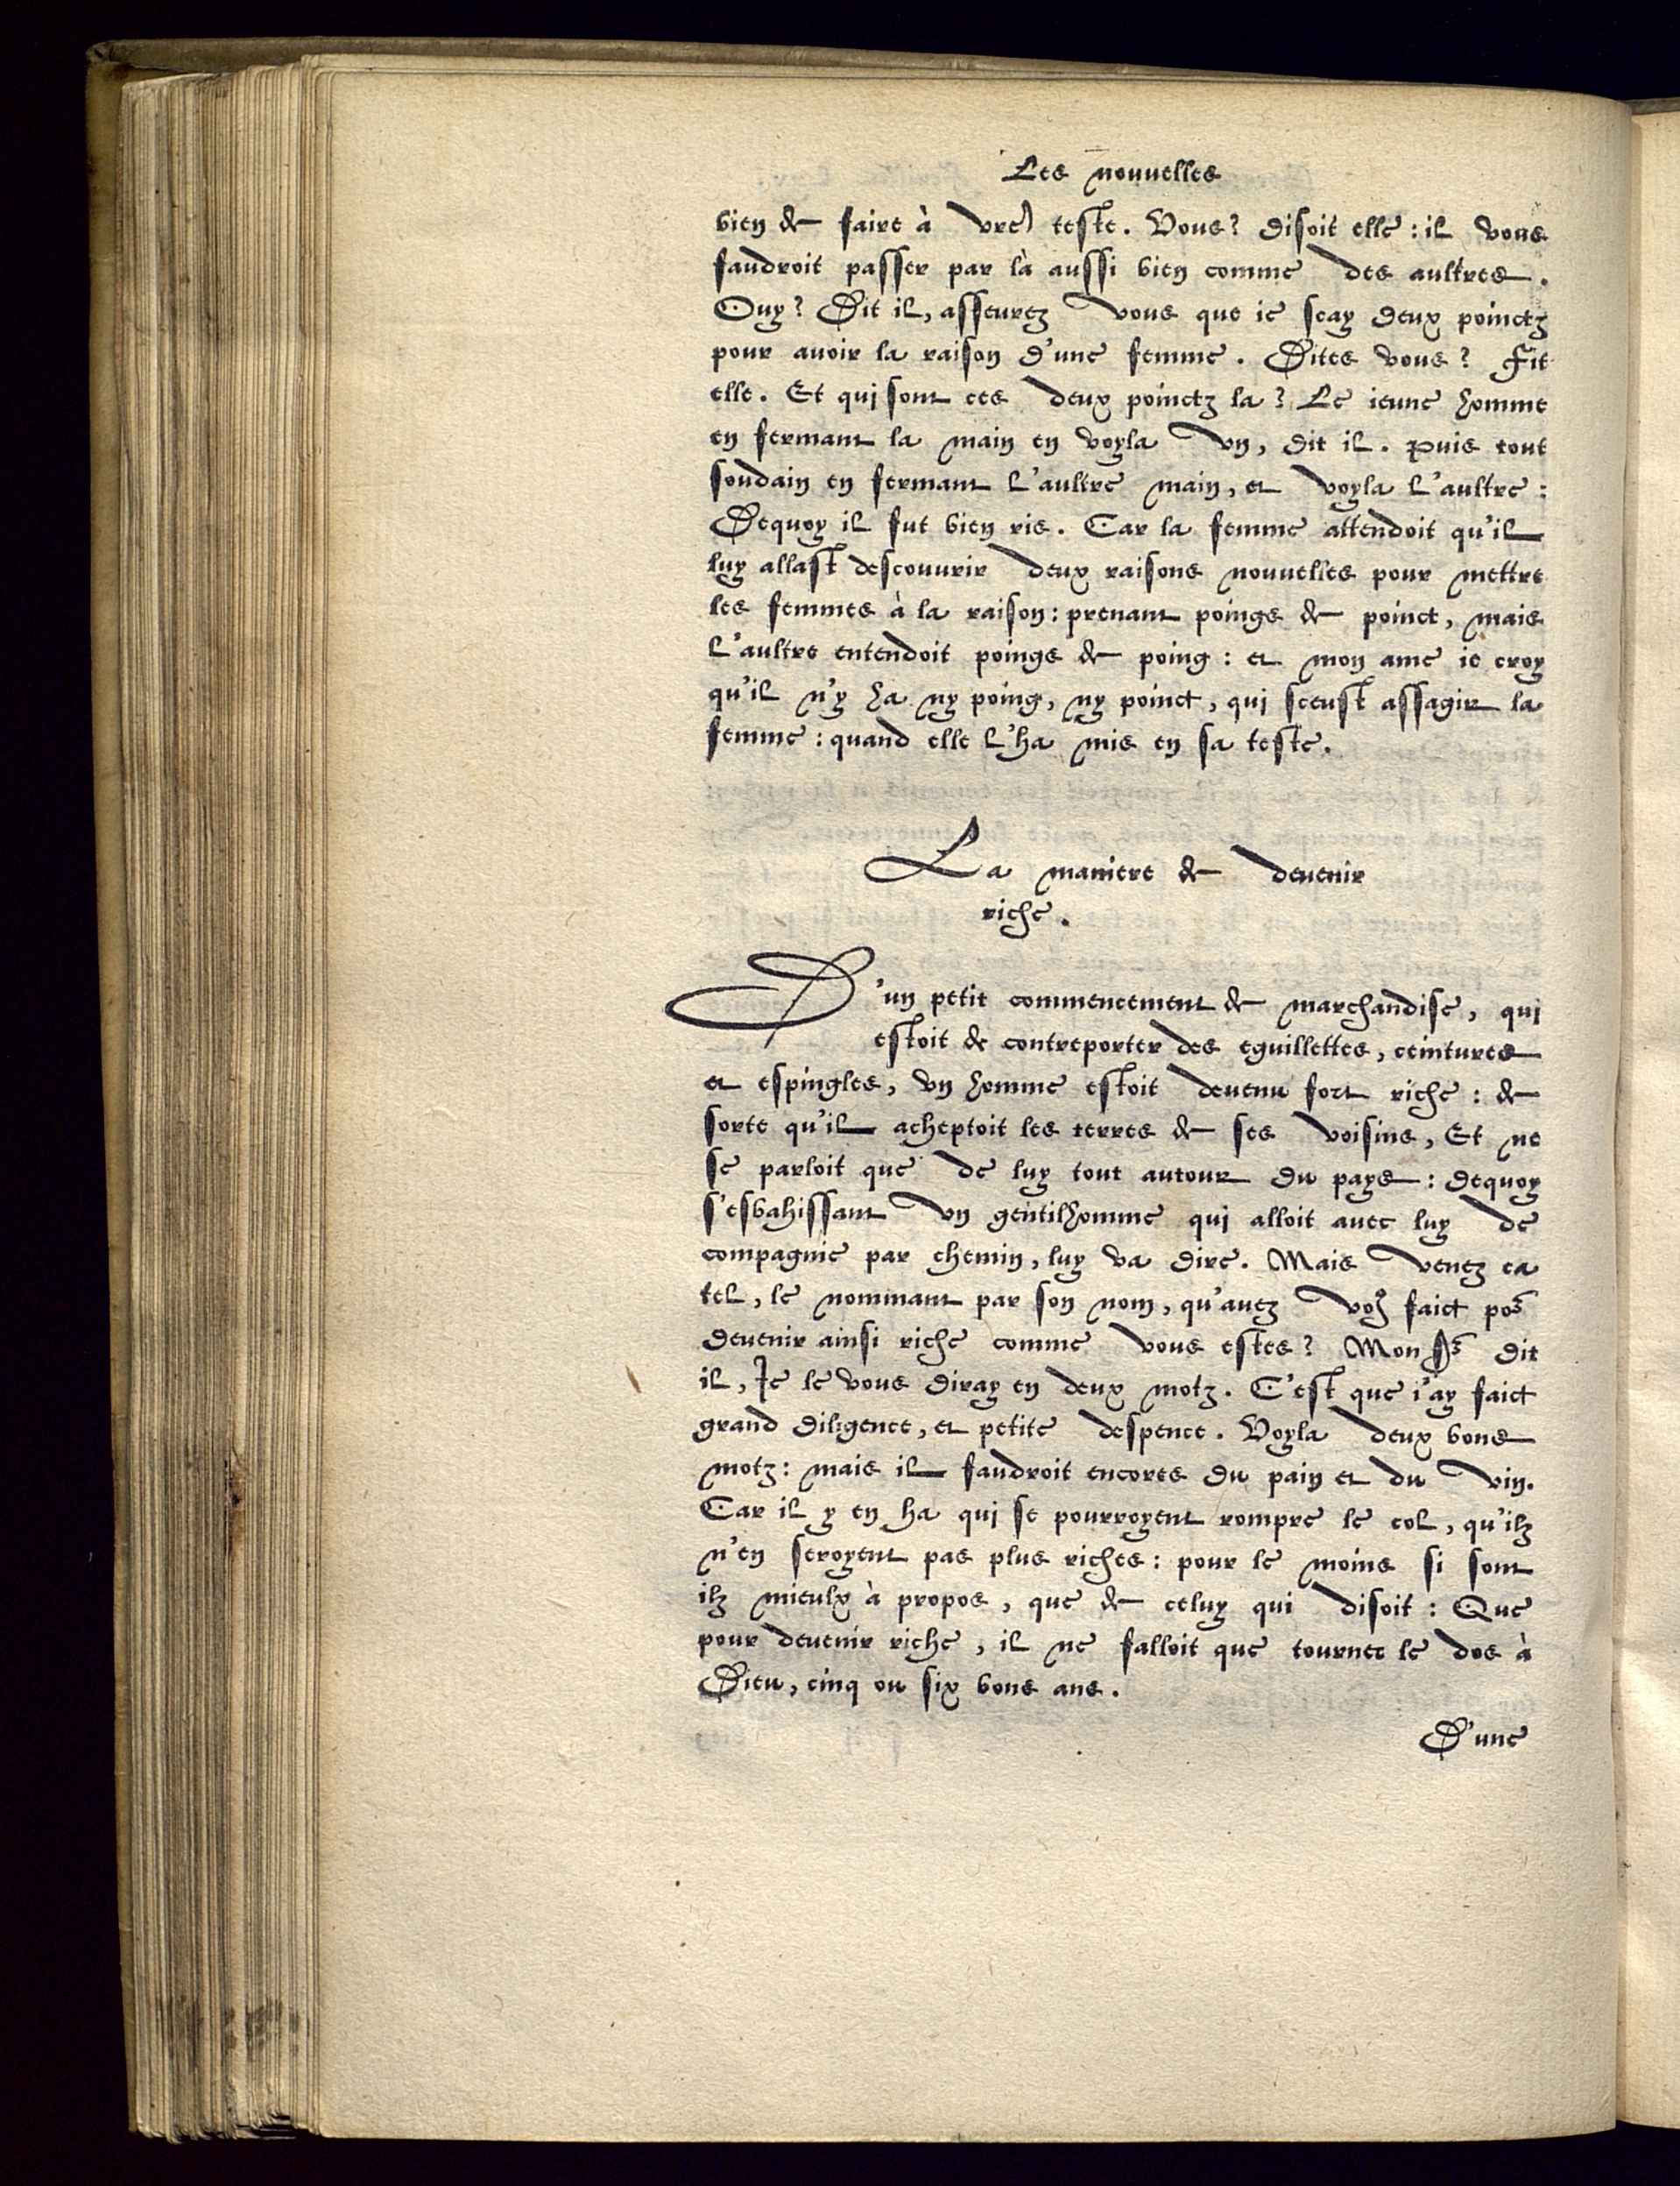 Les nouuelles
bien de faire à vre teste. Vous? disoit elle: il vous
faudroit passer par là aussi bien comme des aultres.
Ouy? Dit il, asseurez vous que ie scay deux poinctz
pour auoir la raison d'une femme. Dites vous? Fit
elle. Et qui sont ces deux poinctz la? Le ieune homme
en fermant la main en voyla vn, dit il. Puis tout
soudain en fermant l'aultre main, et voyla l'aultre:
Dequoy il fut bien ris. Car la femme attendoit qu'il
luy allast descouurir deux raisons nouuelles pour mettre
les femmes à la raison: prenant poings de poinct, mais
l'aultre entendoit poings de poing: et mon ame ie croy
qu'il n'y ha ny poing, ny poinct, qui sceust assagir la
femme: quand elle l'ha mis en sa teste.
La maniere de deuenir
riche.
D'un petit commencement de marchandise, qui
estoit de contreporter des eguillettes, ceintures
et espingles, vn homme estoit deuenu fort riche: de
sorte qu'il acheptoit les terres de ses voisins, Et ne
se parloit que de luy tout autour du pays: dequoy
s'esbahissant vn gentilhomme qui alloit auec luy de
compagnie par chemin, luy va dire. Mais venez ca
tel, le nommant par son nom, qu'auez vo⁹ faict por
deuenir ainsi riche comme vous estes? Monsr dit
il, Ie le vous diray en deux motz. C'est que i'ay faict
grand diligence, et petite despence. Voyla deux bons
motz: mais il faudroit encores du pain et du vin.
Car il y en ha qui se pourroyent rompre le col, qu'ilz
n'en seroyent pas plus riches: pour le moins si sont
ilz mieulx à propos, que de celuy qui disoit: Que
pour deuenir riche, il ne falloit que tourner le dos à
Dieu, cinq ou six bons ans.
D'une